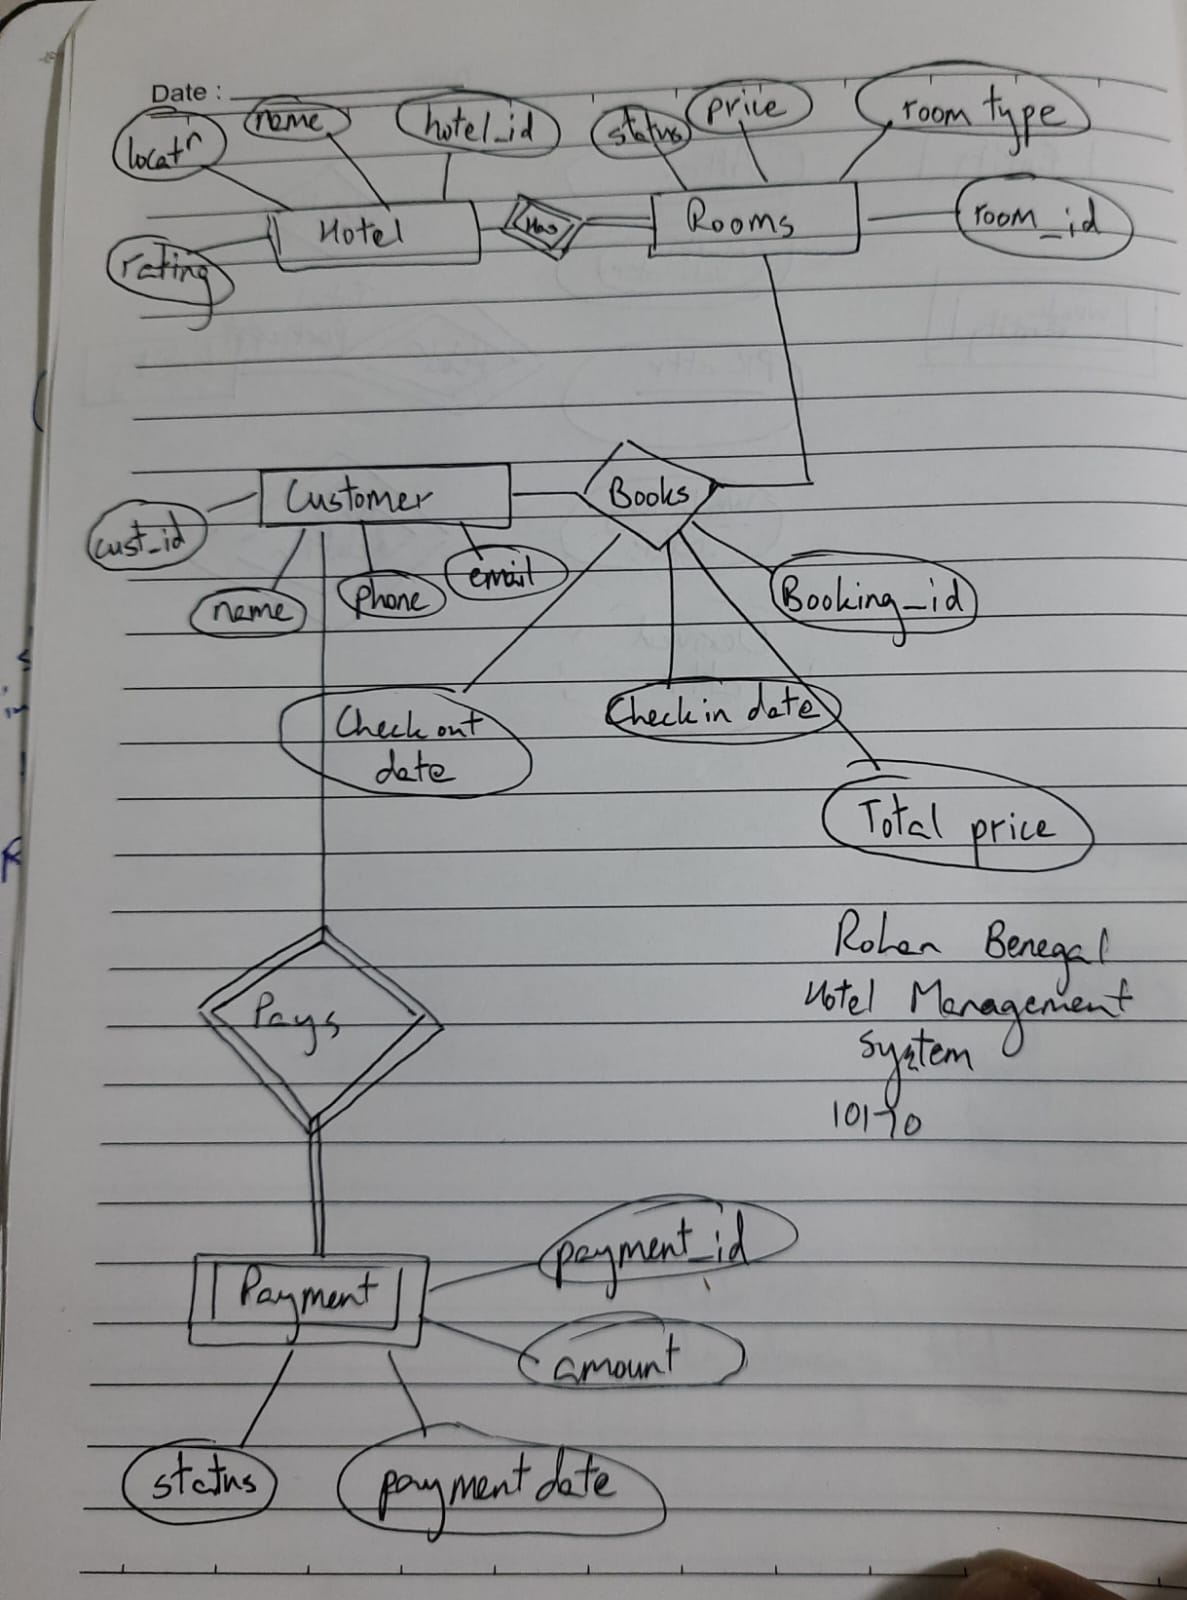 Date :
locatⁿ name hotel_id status price room type
Hotel Has Rooms room_id
rating
Customer Books
cust_id
name phone email Booking_id
Check out
date
Check in date
Total price
Rohan Benegal
Hotel Management
System
Pays
payment_id
Payment
amount
status payment date